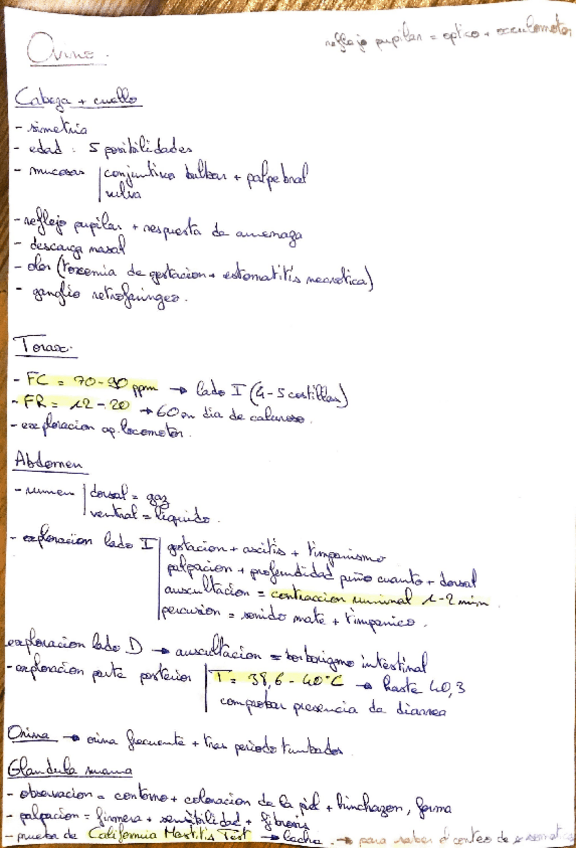 reflejo pupilar = optico + oculomotor
Ovino.
Cabeza + cuello
- simetria
- edad : 5 posibilidades
- mucosas | conjuntiva bulbar + palpebral
vulva
- reflejo pupilar + respuesta da amenaza
- descarga nasal
- olor (toxemia de gestacion + estomatitis necrotica)
- ganglio retrofaringeo.
Torax.
- FC = 70-90 ppm → lado I (4-5 costillas)
- FR = 12-20 → 60 en dia de caluroso.
- exploracion ap. locomotor.
Abdomen
- rumen | dorsal = gaz
ventral = liquido.
- exploracion lado I | gestacion + ascitis + timpanismo
palpacion + profundidad puño cuanto + dorsal
auscultacion = contraccion ruminal 1-2 min.
percusion = sonido mate + timpanico.
- exploracion lado D → auscultacion = borborigmo intestinal
- exploracion parte posterior | T = 38,6 - 40°C → hasta 40,3
comprobar presencia da diarrea
Orina → orina frecuente + tras periodo tumbados
Glandula mama
- observacion = contorno + coloracion de la piel + hinchazon, forma
- palpacion = firmeza + sensibilidad + fibrosis
- prueba de California Mastitis Test → leche. → para saber el conteo de